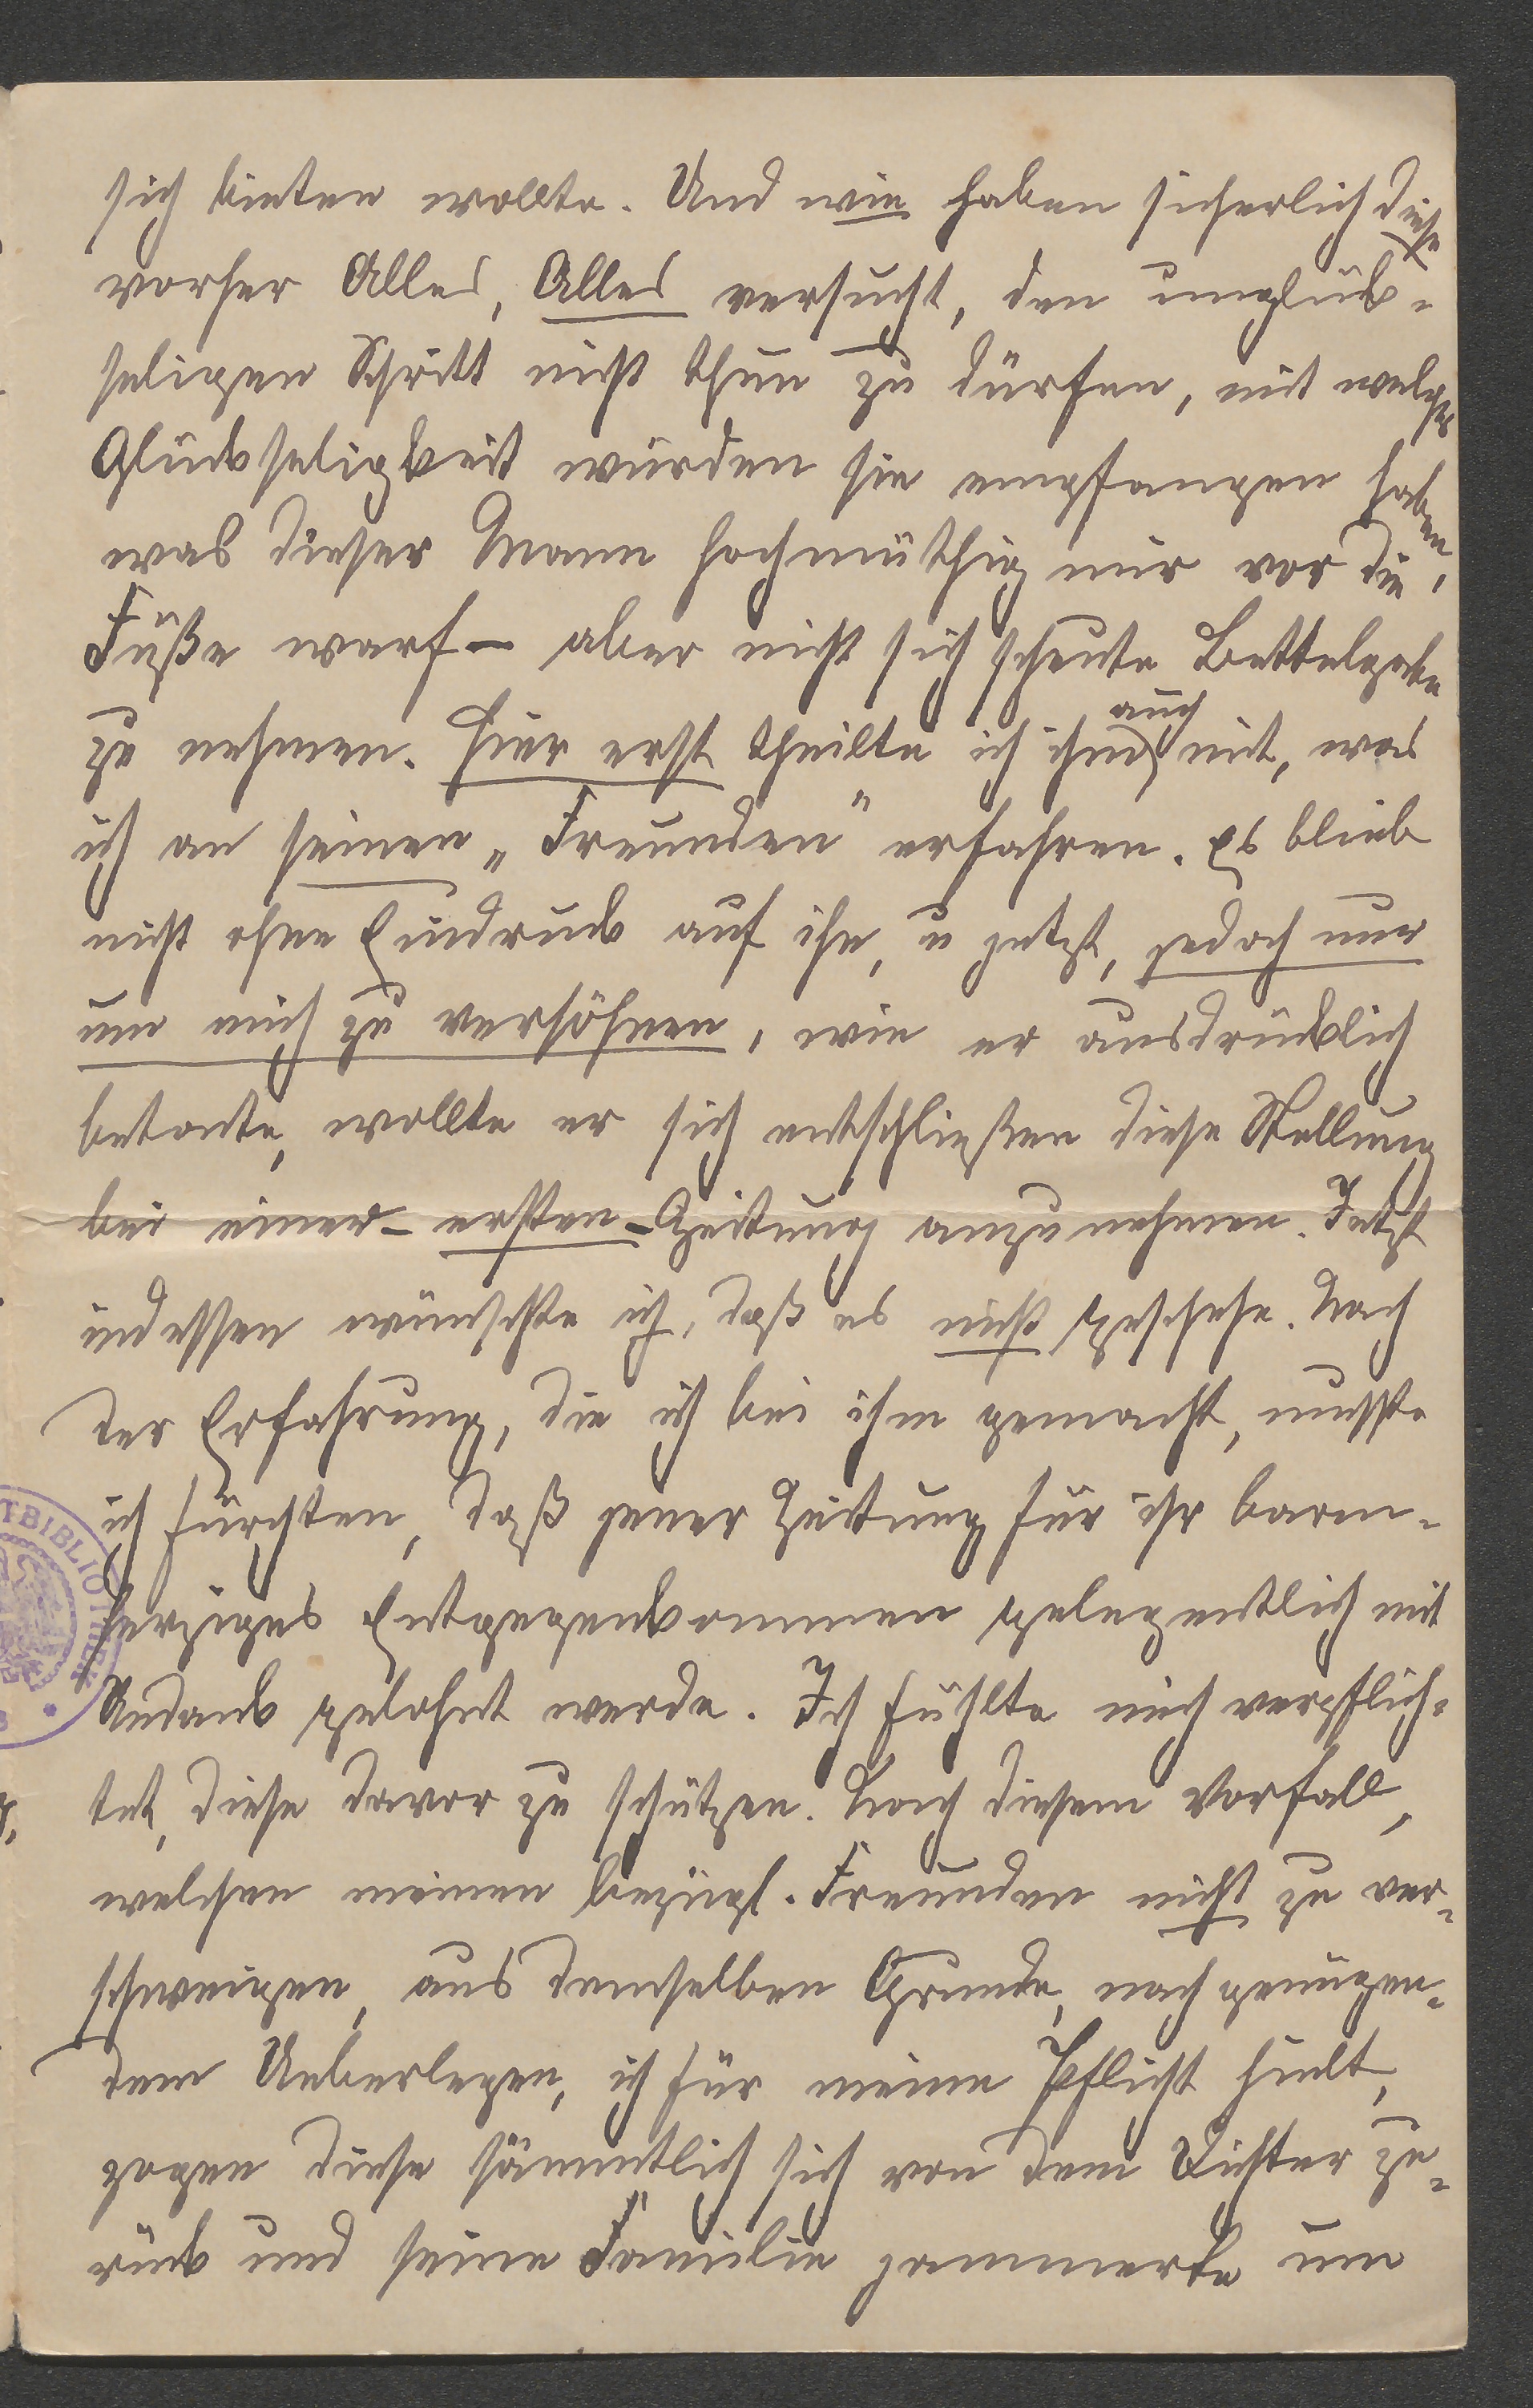 sich bieten wollte. Und wie haben sicherlich diese
vorher Alles, Alles versucht, den unglück-
seligen Schritt nicht thun zu dürfen, mit welcher
Glückseligkeit würden sie empfangen haben,
was dieser Mann hochmüthig mir vor die
Füße warf – aber nicht sich scheute Bettelgabe
zu nehmen. Hier erst theilte ich ihm auch mit, was
ich an seinen „Freunden" erfahren. Es blieb
nicht ohne Eindruck auf ihn, u jetzt, jedoch nur
um mich zu versöhnen, wie er ausdrücklich
betonte, wollte er sich entschließen diese Stellung
bei einer – ersten – Zeitung anzunehmen. Jetzt
indessen wünschte ich, daß es nicht geschehe. Nach
der Erfahrung, die ich bei ihm gemacht, mußte
ich fürchten, daß jener Zeitung für ihr barm-
herziges Entgegenkommen gelegentlich mit
Undank gelohnt werde. Ich fühlte mich verpflich-
tet, diese davor zu schützen. Nach diesem Vorfall,
welchen meinen bezügl. Freunden nicht zu ver-
schweigen, aus demselben Grunde, nach genügen-
dem Ueberlegen, ich für meine Pflicht hielt,
zogen diese sämmtlich sich von dem Dichter zu-
rück und seine Familie jammerte um
TBIBLIOTHEK